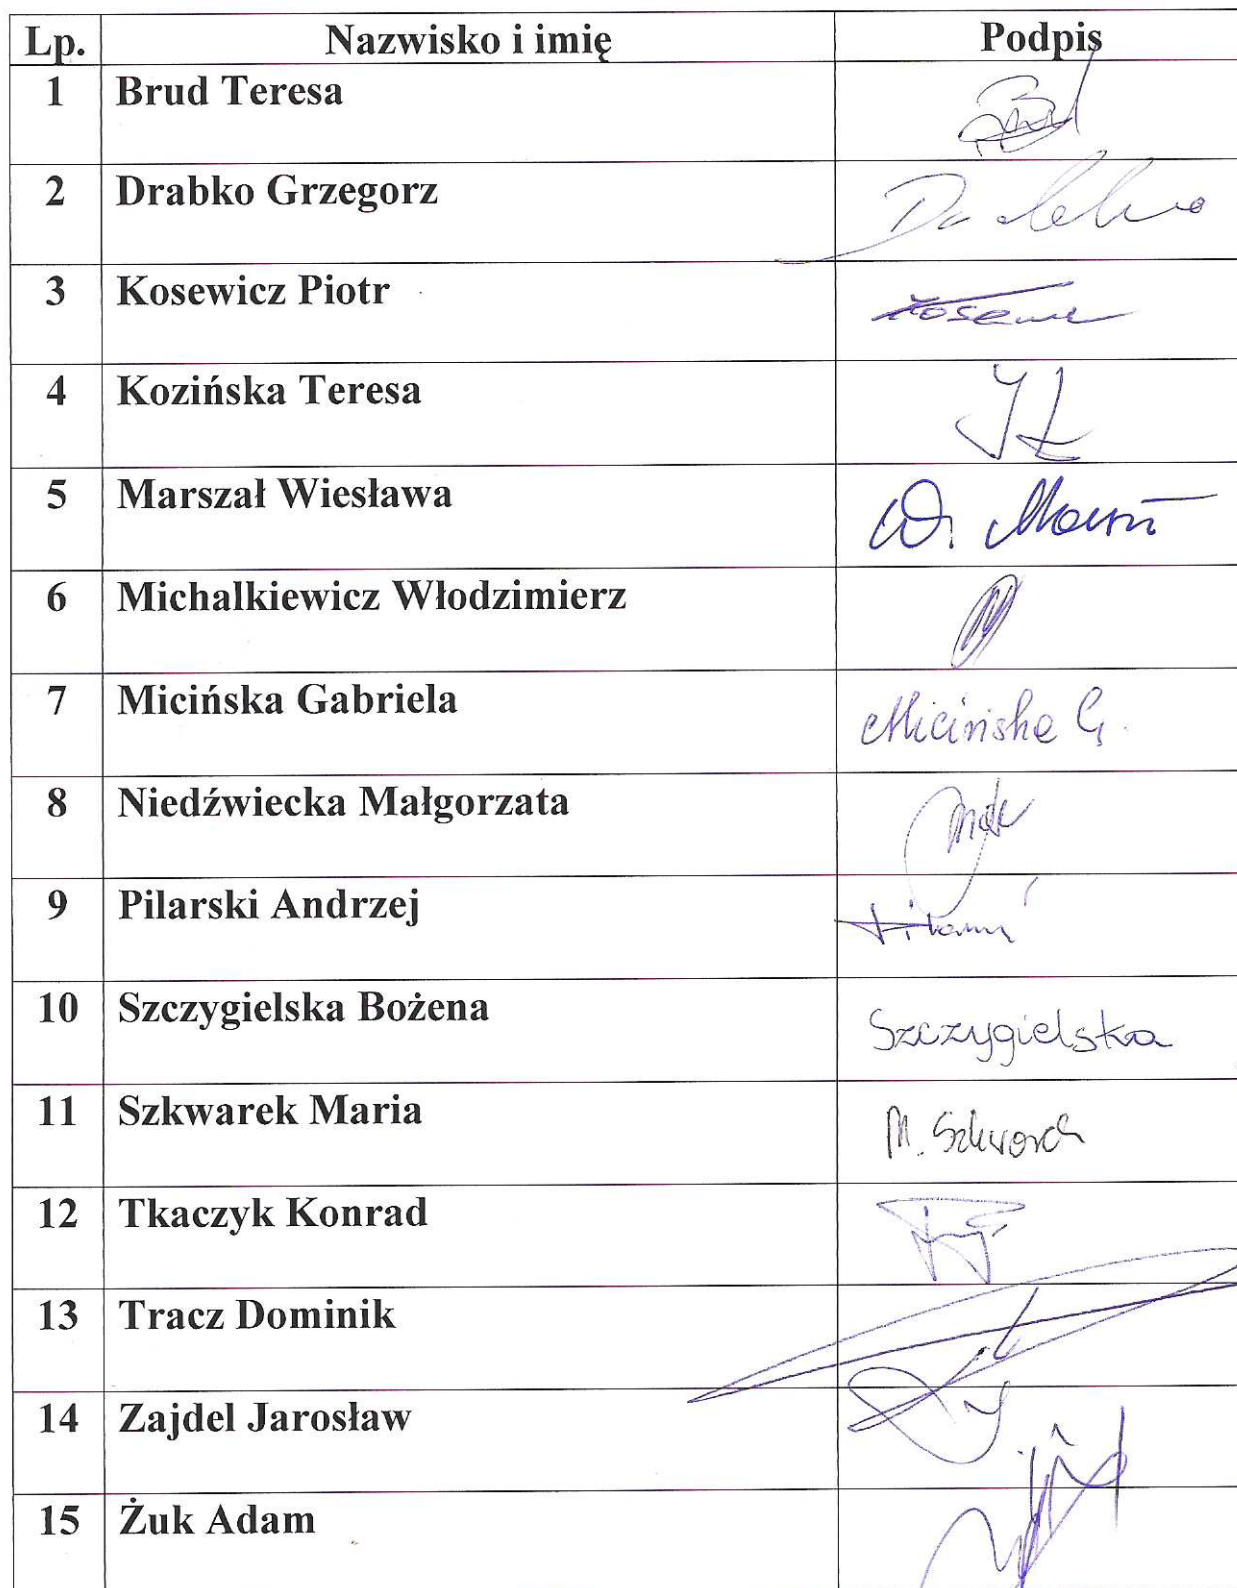 Lp. Nazwisko i imię Podpis
1 Brud Teresa
2 Drabko Grzegorz
3 Kosewicz Piotr
4 Kozińska Teresa
5 Marszał Wiesława W.
6 Michalkiewicz Włodzimierz
7 Micińska Gabriela Micińska G.
8 Niedźwiecka Małgorzata
9 Pilarski Andrzej
10 Szczygielska Bożena Szczygielska
11 Szkwarek Maria M. Szkwarek
12 Tkaczyk Konrad
13 Tracz Dominik
14 Zajdel Jarosław
15 Żuk Adam